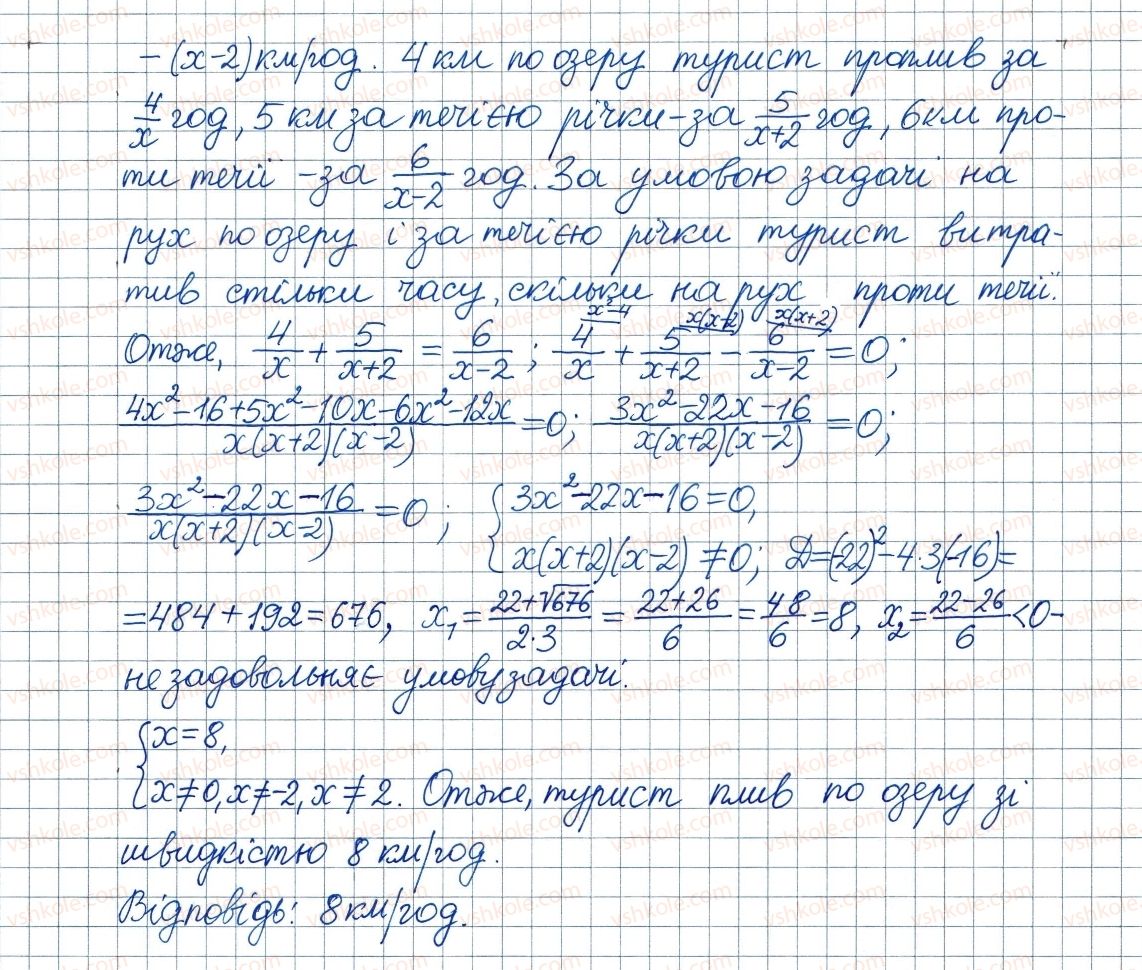 – (x–2) км/год. 4 км по озеру турист проплив за
4/x год, 5 км за течією річки – за 5/(x+2) год, 6 км про-
ти течії – за 6/(x–2) год. За умовою задачі на
рух по озеру і за течією річки турист витра-
тив стільки часу, скільки на рух проти течії.
x²–4 x(x–2) x(x+2)
Отже, 4/x + 5/(x+2) = 6/(x–2); 4/x + 5/(x+2) – 6/(x–2) = 0;
(4x²–16+5x²–10x–6x²–12x)/(x(x+2)(x–2)) = 0; (3x²–22x–16)/(x(x+2)(x–2)) = 0;
(3x²–22x–16)/(x(x+2)(x–2)) = 0; { 3x²–22x–16=0,
x(x+2)(x–2) ≠ 0; D=(-22)²–4·3(–16)=
=484+192=676, x₁ = (22+√676)/(2·3) = (22+26)/6 = 48/6 = 8, x₂ = (22–26)/6 < 0 –
не задовольняє умову задачі.
{ x=8,
x≠0, x≠–2, x≠2. Отже, турист плив по озеру зі
швидкістю 8 км/год.
Відповідь: 8 км/год.